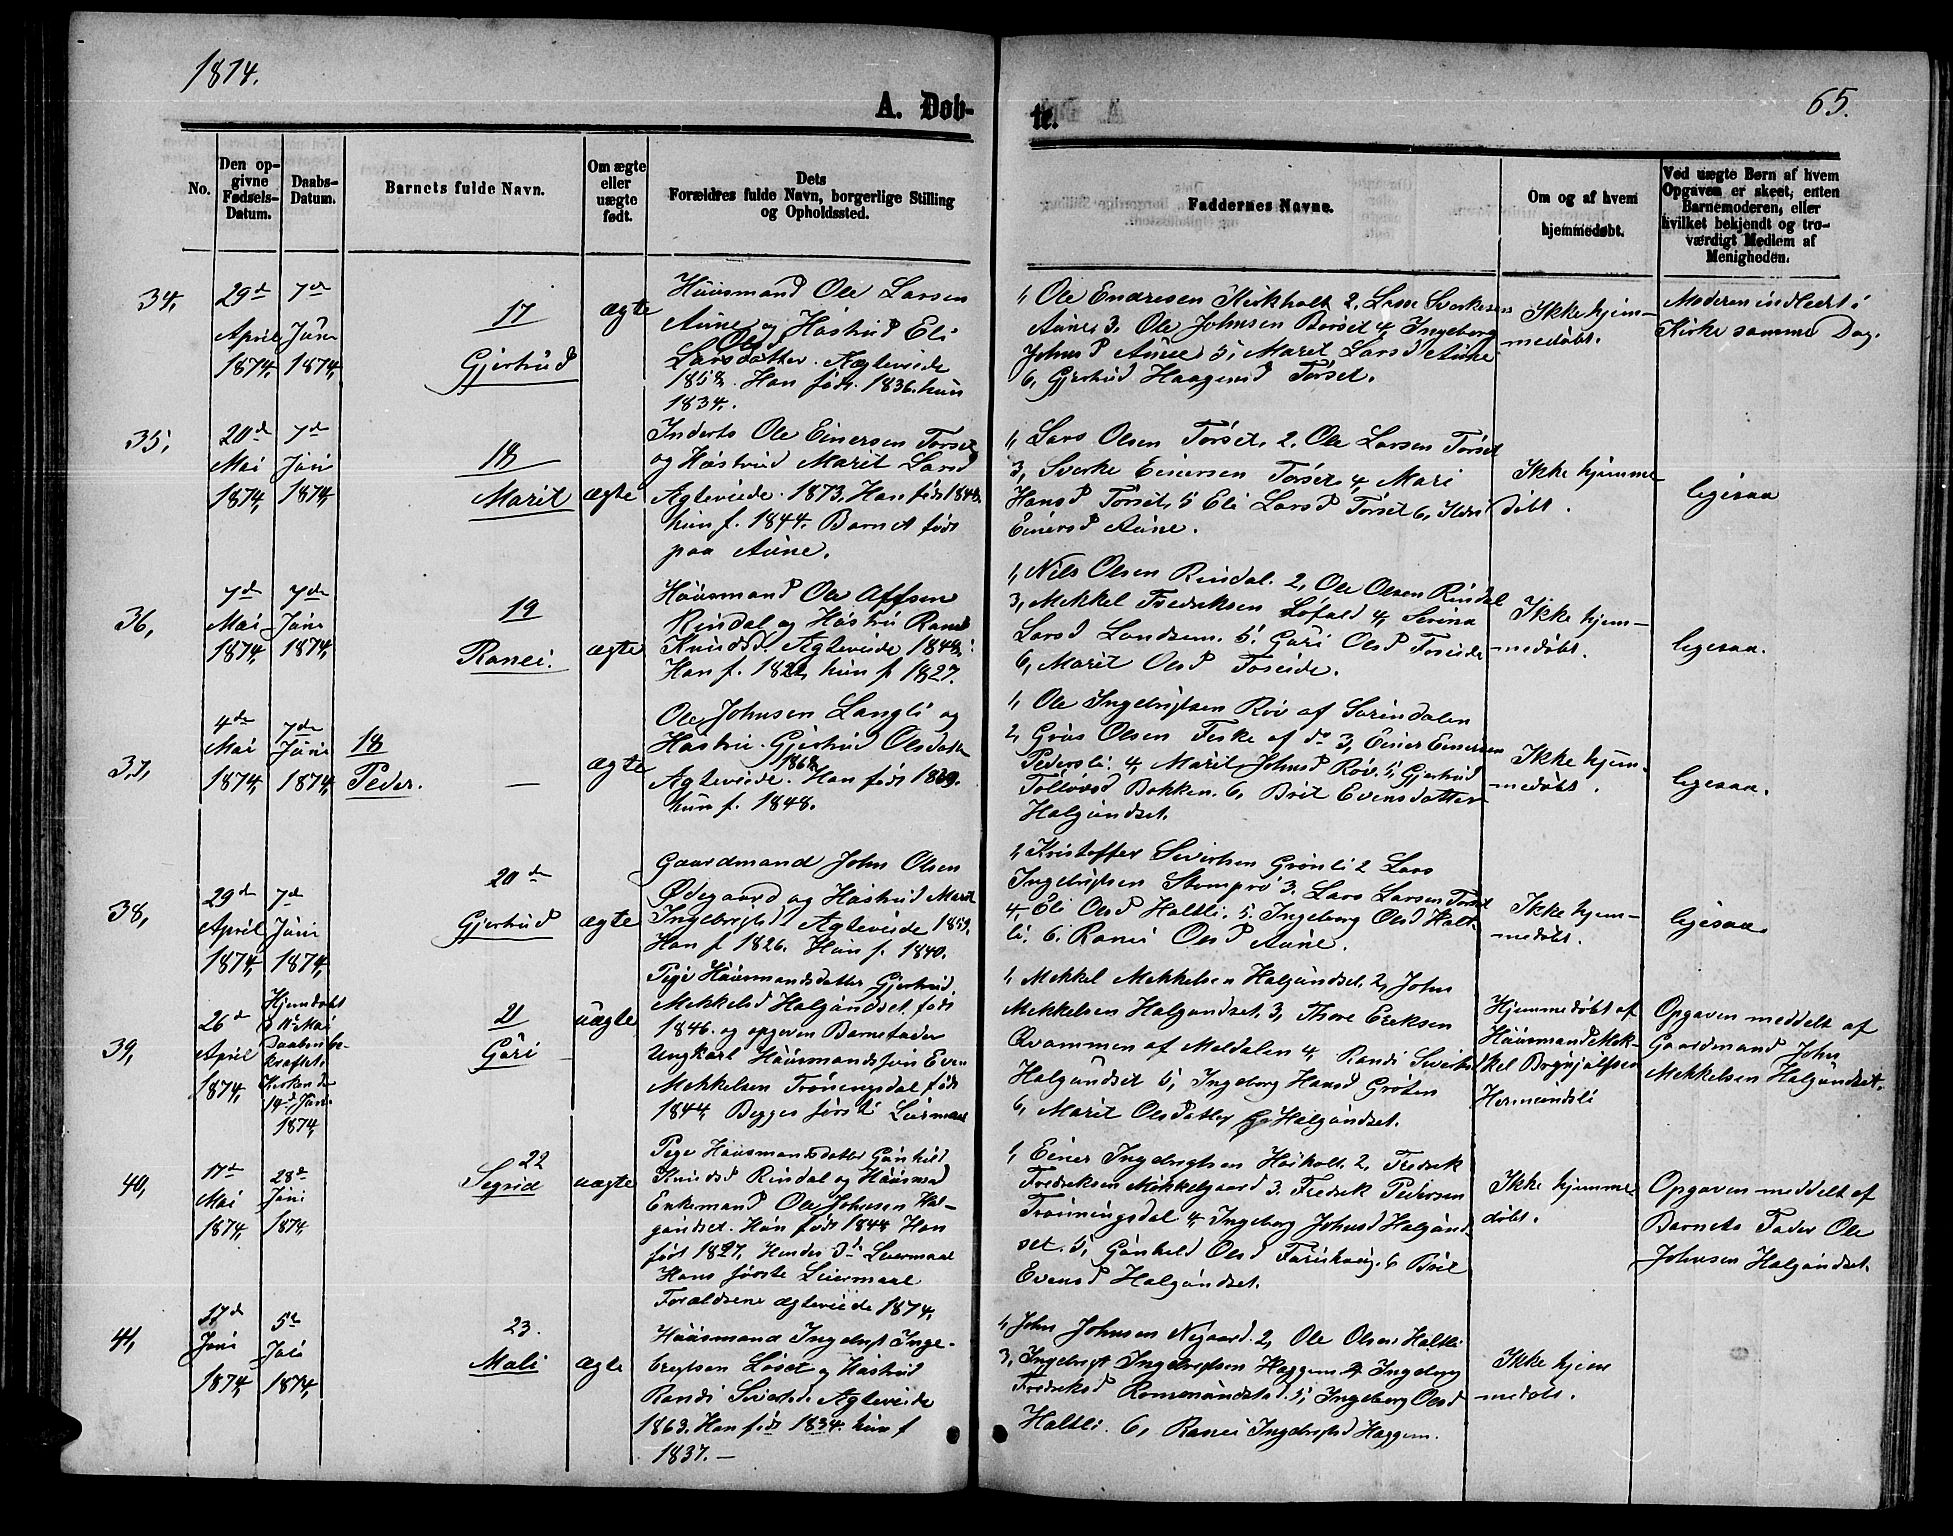 1874.
65.
A. Døb-
te.
No.
Den op-
givne
Fødsels-
Datum.
Daabs-
Datum.
Barnets fulde Navn.
Om ægte
eller
uægte
født.
Dets
Forældres fulde Navn, borgerlige Stilling
og Opholdssted.
Faddernes Navne.
Om og af hvem
hjemmedøbt.
Ved uægte Børn af hvem
Opgaven er skeet, enten
Barnemoderen, eller
hvilket bekjendt og tro-
værdigt Medlem af
Menigheden.
34,
29de
April
1874,
7de
Juni
1874,
17
Gjertrud
ægte
Huusmand Ole Larsen
Aune og Hustrud Eli
Olsd
Larsdatter. Ægteviede
1858. Han født 1836. hun
1834.
1, Ole Endresen Kirkholt 2, Lasse Sverkesen
Aune, 3. Ole Johnsen Børset 4, Ingeborg
Johnsd Aune 5, Marit Larsd Aune
6, Gjertrud Haagensd Torset.
Ikke hjem-
medøbt.
Moderen indledet i
Kirke samme Dag.
35,
20de
Mai
1874,
7de
Juni
1874,
18
Marit
ægte
Inderts Ole Einersen Torset
og Hustrud Marit Larsd
Ægteviede. 1873. Han født 1848.
hun f. 1844. Barnet født
paa Aune.
1, Lars Olsen Torset, 2, Ole Larsen Torset
3, Sverke Einersen Torset 4, Mari
Hansd Torset, 5 Eli Larsd Torset 6, Ildri
Einersd Aune.
Ikke hjemme
døbt.
ligesaa
36,
7de
Mai
1874,
7de
Juni
1874,
19
Ranei.
ægte
Huusmand Ole Olfsen
Rindal og Hustru Ranei
Knudsd. Ægteviede 1848.
Han f. 1822, hun f 1827.
1, Nils Olsen Rindal. 2, Ole Olsen Rindal
3, Mekkel Fredriksen Løfald 4, Serina
Larsd Landsem. 5. Guri Olsd Toseide
6, Marit Olsd Toseide.
Ikke hjem-
medøbt.
ligesaa.
37,
4de
Mai
1874,
7de
Juni
1874,
18
Peder.
—
ægte
Ole Johnsen Langli og
Hustru. Gjertrud Olsdatter
1868
Ægteviede. Han født 1839.
hun f. 1848.
1, Ole Ingebrigtsen Røv af Surendalen
2, Gros Olsen Feske af do 3, Einer Einersen
Pedersli. 4, Marit Johnsd Røv. 5, Gjertrud
Tollevsd Bakken. 6, Brit Evensdatter
Halgundset.
Ikke hjem-
medøbt.
ligesaa.
38,
29de
April
1874,
7de
Juni
1874,
20de
Gjertrud
ægte
Gaardmand John Olsen
Ødegaard og Hustrud Marit
Ingebrigtsd Ægteviede 1859.
Han f 1826. Hun f. 1840.
1, Kristoffer Sivertsen Grønli 2 Lars
Ingebrigtsen Stomprø 3. Lars Larsen Torset
4, Eli Olsd Haltli. 5. Ingeborg Olsd Halt-
li. 6. Ranei Olsd Aune.
Ikke hjem-
medøbt.
ligesaa
39,
26de
April
1874,
Hjemdøbt
Mai
Daaben be-
kræftet i
Kirken de
14de Juni
1874,
21
Guri
uægte
Pige Huusmandsdatter Gjertrud
Mekkelsd Halgundset født
1846. og opgiven Barnefader
Ungkarl Huusmandssøn Even
Mekkelsen Trøningsdal født
1844, Begges første Leiermaal
1, Mekkel Mekkelsen Halgundset, 2, John
Mekkelsen Halgundset, 3, Thore Eriksen
Qvammen af Meldalen 4, Randi Sivertsd
Halgundset 5, Ingeborg Hansd Groten
6, Marit Olsdatter Halgundset.
Hjemmedøbt af
Huusmand Mek-
kel Brynjolfsen
Hermandsli
Opgaven meddelt af
Gaardmand John
Mekkelsen Halgundset.
40,
17de
Mai
1874,
28de
Juni
1874,
22
Segrid
uægte
Pige Huusmandsdatter Gunhild
Knudsd Rindal og Huusmd
Enkemand Ole Johnsen Hal-
gundset. Hun født 1844 Han
født 1827, Hendes 3de Leiermaal
Hans første Leiermaal
Forældrene ægteviede 1874,
1, Einer Ingebrigtsen Høiholt. 2, Fredrik
Fredriksen Mikkelgaard 3. Fredrik Pedersen
Trønningsdal 4, Ingeborg Johnsd Halgund-
set. 5, Gunhild Olsd Furuhaug. 6 Brit
Evensd Halgundset.
Ikke hjemme-
døbt.
Opgaven meddelt af
Barnets Fader Ole
Johnsen Halgundset.
41,
17de
Juni
1874,
5te
Juli
1874,
23.
Mali
ægte
Huusmand Ingebrigt Inge-
brigtsen Løset og Hustrud
Randi Sivertsd. Ægteviede
1863. Han født 1834. hun f
1837. —
1, John Johnsen Nygaard. 2, Ole Olsen Haltli
3, Ingebrigt Ingebrigtsen Haggem. 4 Ingeborg
Fredriksd Romundstad. 5, Ingeborg Olsd
Haltli. 6, Ranei Ingebrigtsd Haggem.
Ikke hjem
medøbt.